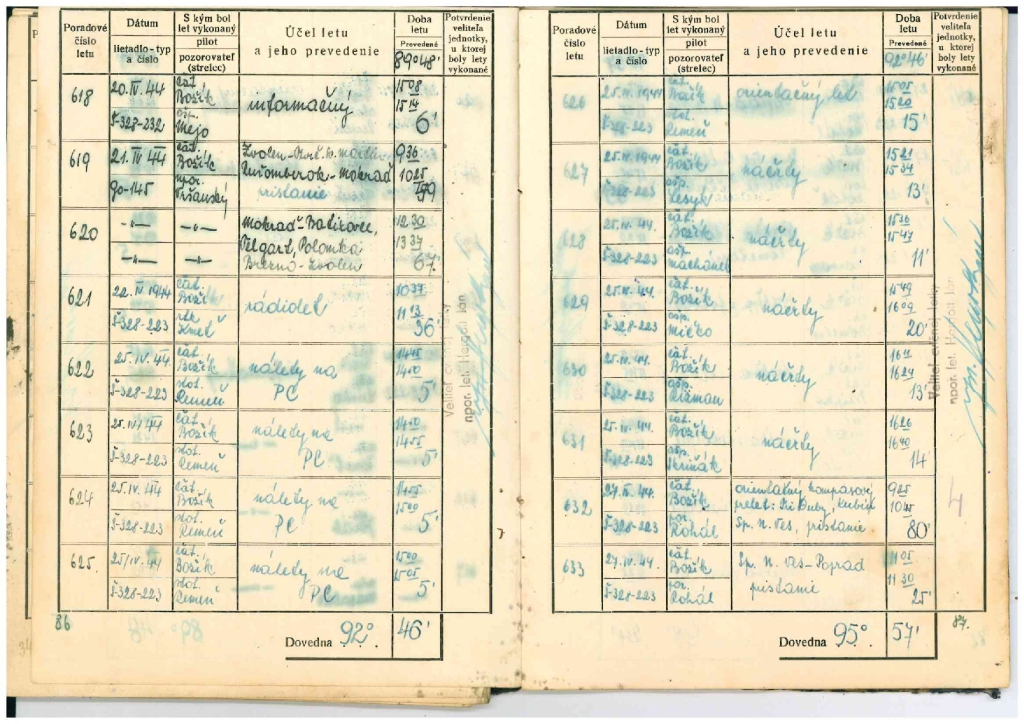 Poradové číslo letu
Dátum
lietadlo - typ a číslo
S kým bol let vykonaný
pilot
pozorovateľ (strelec)
Účel letu a jeho prevedenie
Doba letu
Prevedené
89°48'
Potvrdenie veliteľa jednotky, u ktorej boly lety vykonané
618
20.IV.44
čat. Božík
informačný
15 08
15 14
Š-328-232
Mejo
6'
619
21.IV 44
čat. Božík
9 36
Ružomberok-Mokraď
10 25
90-145
Vršanský
pristanie
620
-"-
-"-
Mokraď-
12 30
Telgart, Polomka
13 37
-"-
-"-
Brezno-Zvolen
67'
621
22.IV 1944
čat. Božík
rádiolet
10 37
11 13
Š-328-223
Kmeť
36'
622
25.IV.44.
čat. Božík
nálety na
14 45
Š-328-223
slot. Remeň
PC
5'
623
25.IV 44
čat. Božík
nálety na
14 55
Š-328-223
slot. Remeň
PC
5'
624
25.IV.44
čat. Božík
nálety na
14 55
15 00
Š-328-223
slot. Remeň
PC
5'
625.
25/IV.44
čat. Božík
nálety na
15 00
15 05
Š-328-223
slot. Remeň
PC
5'
86
Dovedna 92° 46'
npor. let. Ján
Poradové číslo letu
Dátum
lietadlo - typ a číslo
S kým bol let vykonaný
pilot
pozorovateľ (strelec)
Účel letu a jeho prevedenie
Doba letu
Prevedené
92°46'
Potvrdenie veliteľa jednotky, u ktorej boly lety vykonané
626
25.IV.1944
čat. Božík
orientačný let
15 05
15 20
Š-328-223
slot. Remeň
15'
627
25.IV.1944
čat. Božík
náčrty
15 21
15 34
Š-328-223
Lesyk
13'
628
25.IV.44.
čat. Božík
náčrty
15 36
15 47
Š-328-223
11'
629
25.IV.44.
čat. Božík
náčrty
15 49
16 09
Š-328-223
Mičko
20'
630
25.IV.44.
čat. Božík
náčrty
16 11
16 24
Š-328-223
13'
631
25.IV.44.
čat. Božík
náčrty
16 26
16 40
Š-328-223
Skriňák
14'
632
27.IV.44.
čat. Božík
orientačný kompasový
9 25
prelet: Tri Duby, Kubín
10 45
Š-328-223
por. Rohál
Sp. N. Ves, pristanie
80'
4
633
27.IV.44
čat. Božík
Sp. N. Ves-Poprad
11 05
11 30
Š-328-223
por. Rohál
pristanie
25'
Dovedna 95° 57'
87.
npor. let. Ján